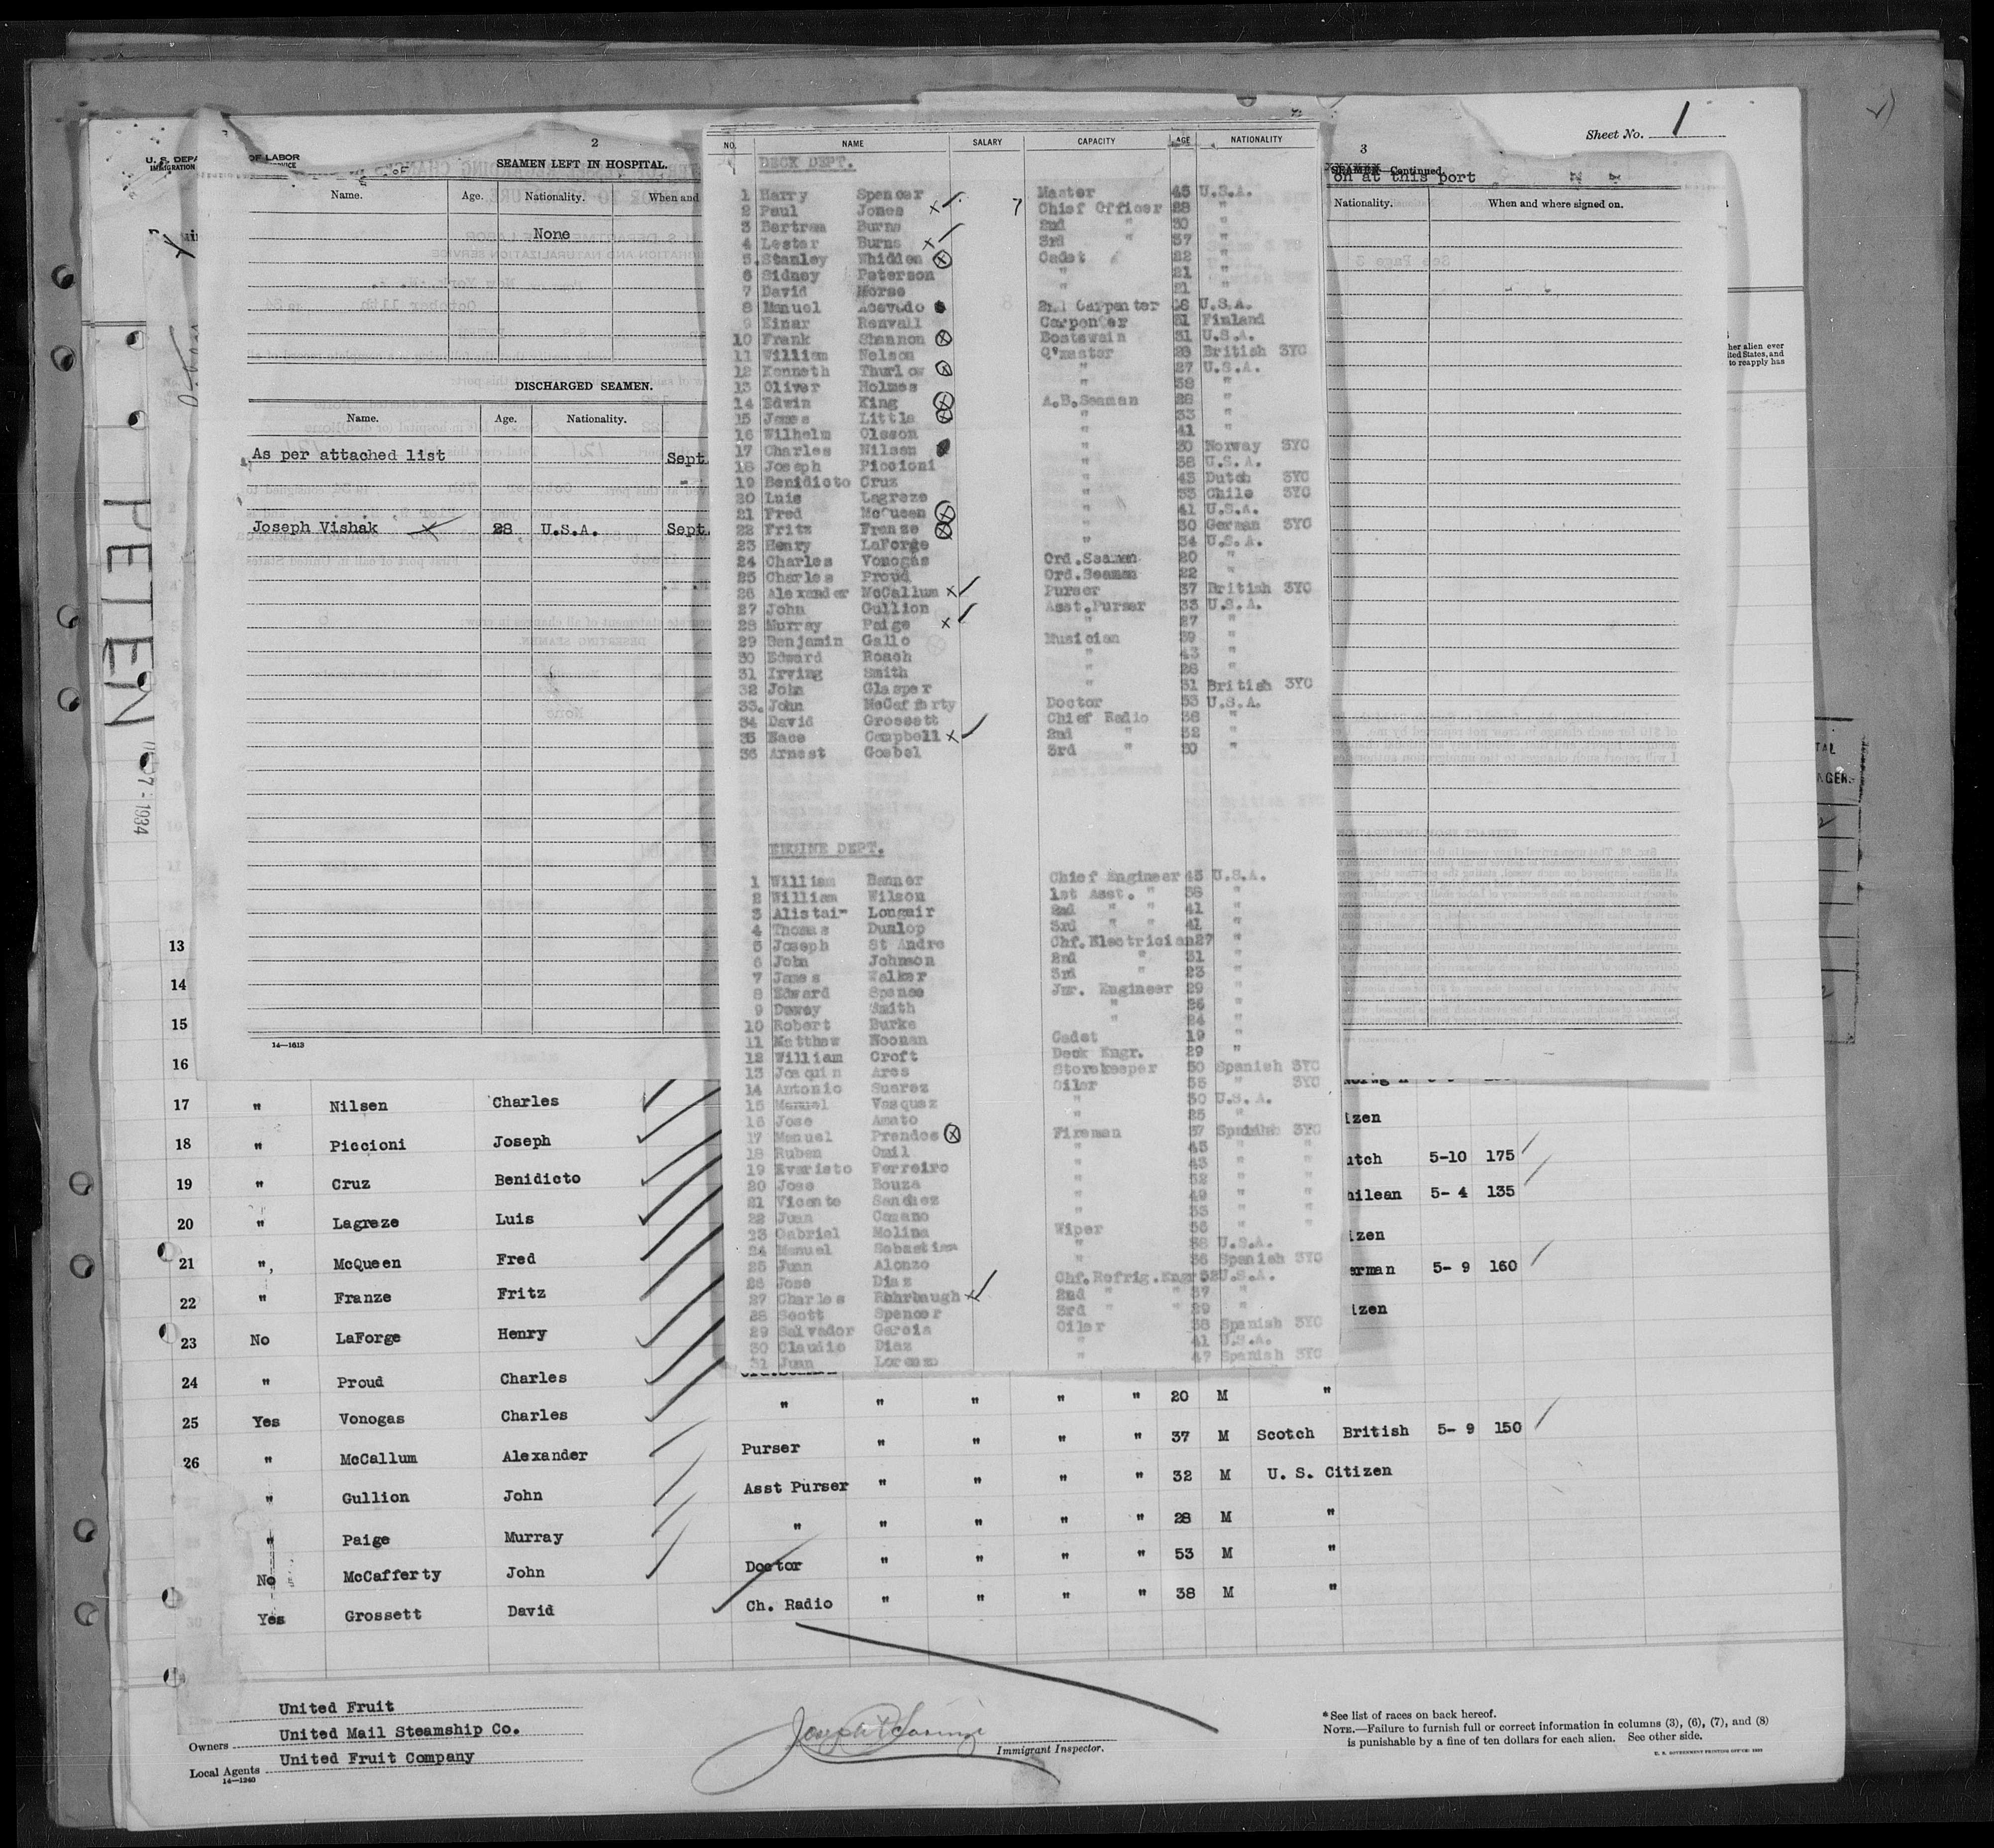 Sheet No. 1
U. S. DEPA
OF LABOR
IMMIGRATION
2
SEAMEN LEFT IN HOSPITAL.
Name. Age. Nationality. When and
None
DISCHARGED SEAMEN.
Name. Age. Nationality.
As per attached list Sept.
Joseph Vishak 28 U.S.A. Sept.
14—1613
PETEN
7 - 1934
NO. NAME SALARY CAPACITY AGE NATIONALITY
DECK DEPT.
1 Harry Spencer Master 45 U.S.A.
2 Paul Jones Chief Officer 28 "
3 Bertram Burns 2nd " 30 "
4 Lester Burns 3rd " 37 "
5. Stanley Whidden Cadet 22 "
6 Sidney Peterson " 21 "
7 David Morse " 21 "
8 Manuel Acevedo 2nd Carpenter U.S.A.
9 Einar Renvall Carpenter 31 Finland
10 Frank Shannon Boatswain 31 U.S.A.
11 William Nelson Q'master 28 British SYC
12 Kenneth Thurlow " 27 U.S.A.
13 Oliver Holmes " 38 "
14 Edwin King A.B.Seaman 28 "
15 James Little " 33 "
16 Wilhelm Olsson " 41 "
17 Charles Nilsen " 30 Norway SYC
18 Joseph Piccioni " 38 U.S.A.
19 Benidicto Cruz " 43 Dutch SYC
20 Luis Lagreze " 33 Chile SYC
21 Fred McQueen " 41 U.S.A.
22 Fritz Franze " 30 German SYC
23 Henry LaForge " 34 U.S.A.
24 Charles Vonogas Ord.Seaman 20 "
25 Charles Proud Ord.Seaman 22 "
26 Alexander McCallum Purser 37 British SYC
27 John Gullion Asst.Purser 33 U.S.A.
28 Murray Paige " 27 "
29 Benjamin Gallo Musician 39 "
30 Edward Roach " 43 "
31 Irving Smith " 28 "
32 John Glasper " 31 British SYC
33. John McCafferty Doctor 53 U.S.A.
34 David Grossett Chief Radio 38 "
35 Campbell 2nd " 32 "
36 Arnest Goebel 3rd " 30 "
ENGINE DEPT.
1 William Banner Chief Engineer 43 U.S.A.
2 William Wilson 1st Asst. " 38 "
3 Alistair Longair 2nd " " 41 "
4 Thomas Dunlop 3rd " " 41 "
5 Joseph St Andre Chf.Electrician 27 "
6 John Johnson 2nd " 31 "
7 James Walker 3rd " 23 "
8 Edward Spense Jnr. Engineer 29 "
9 Dewey Smith " 26 "
10 Robert Burke " 24 "
11 Matthew Noonan Cadet 19 "
12 William Croft Deck Engr. 29 "
13 Joaquin Ares Storekeeper 50 Spanish SYC
14 Antonio Suarez Oiler 35 " SYC
15 Manuel Vasquez " 30 U.S.A.
16 Jose Amato " 25 "
17 Manuel Prendes Fireman 37 Spanish SYC
18 Ruben Omil " 45 " "
19 Evaristo Ferreiro " 43 " "
20 Jose Bouza " 32 " "
21 Vicente Sanchez " 49 " "
22 Juan Casano " 33 " "
23 Gabriel Molina Wiper 36 " "
24 Manuel Sebastian " 38 U.S.A.
25 Juan Alonzo " 36 Spanish SYC
26 Jose Diaz Chf.Refrig.Engr 52 U.S.A.
27 Charles Rohrbaugh 2nd " " 37 "
28 Scott Spencer 3rd " " 29 "
29 Salvador Garcia Oiler 38 Spanish SYC
30 Claudio Diaz " 41 U.S.A.
31 Juan Lorenzo " 47 Spanish SYC
3
SEAMEN—Continued.
on at this port
Nationality. When and where signed on.
her alien ever
ited States, and
to reapply has
13
14
15
16
17 " Nilsen Charles
18 " Piccioni Joseph izen
19 " Cruz Benidicto utch 5-10 175
20 " Lagreze Luis hilean 5- 4 135
21 " McQueen Fred izen
22 " Franze Fritz erman 5- 9 160
23 No LaForge Henry izen
24 " Proud Charles
25 Yes Vonogas Charles " " " " " 20 M "
26 " McCallum Alexander Purser " " " " 37 M Scotch British 5- 9 150
" Gullion John Asst Purser " " " " 32 M U. S. Citizen
" Paige Murray " " " " " 28 M "
No McCafferty John Doctor " " " " 53 M "
Yes Grossett David Ch. Radio " " " " 38 M "
United Fruit
Owners United Mail Steamship Co.
Local Agents United Fruit Company
14—1240
Immigrant Inspector.
* See list of races on back hereof.
NOTE.—Failure to furnish full or correct information in columns (3), (6), (7), and (8)
is punishable by a fine of ten dollars for each alien. See other side.